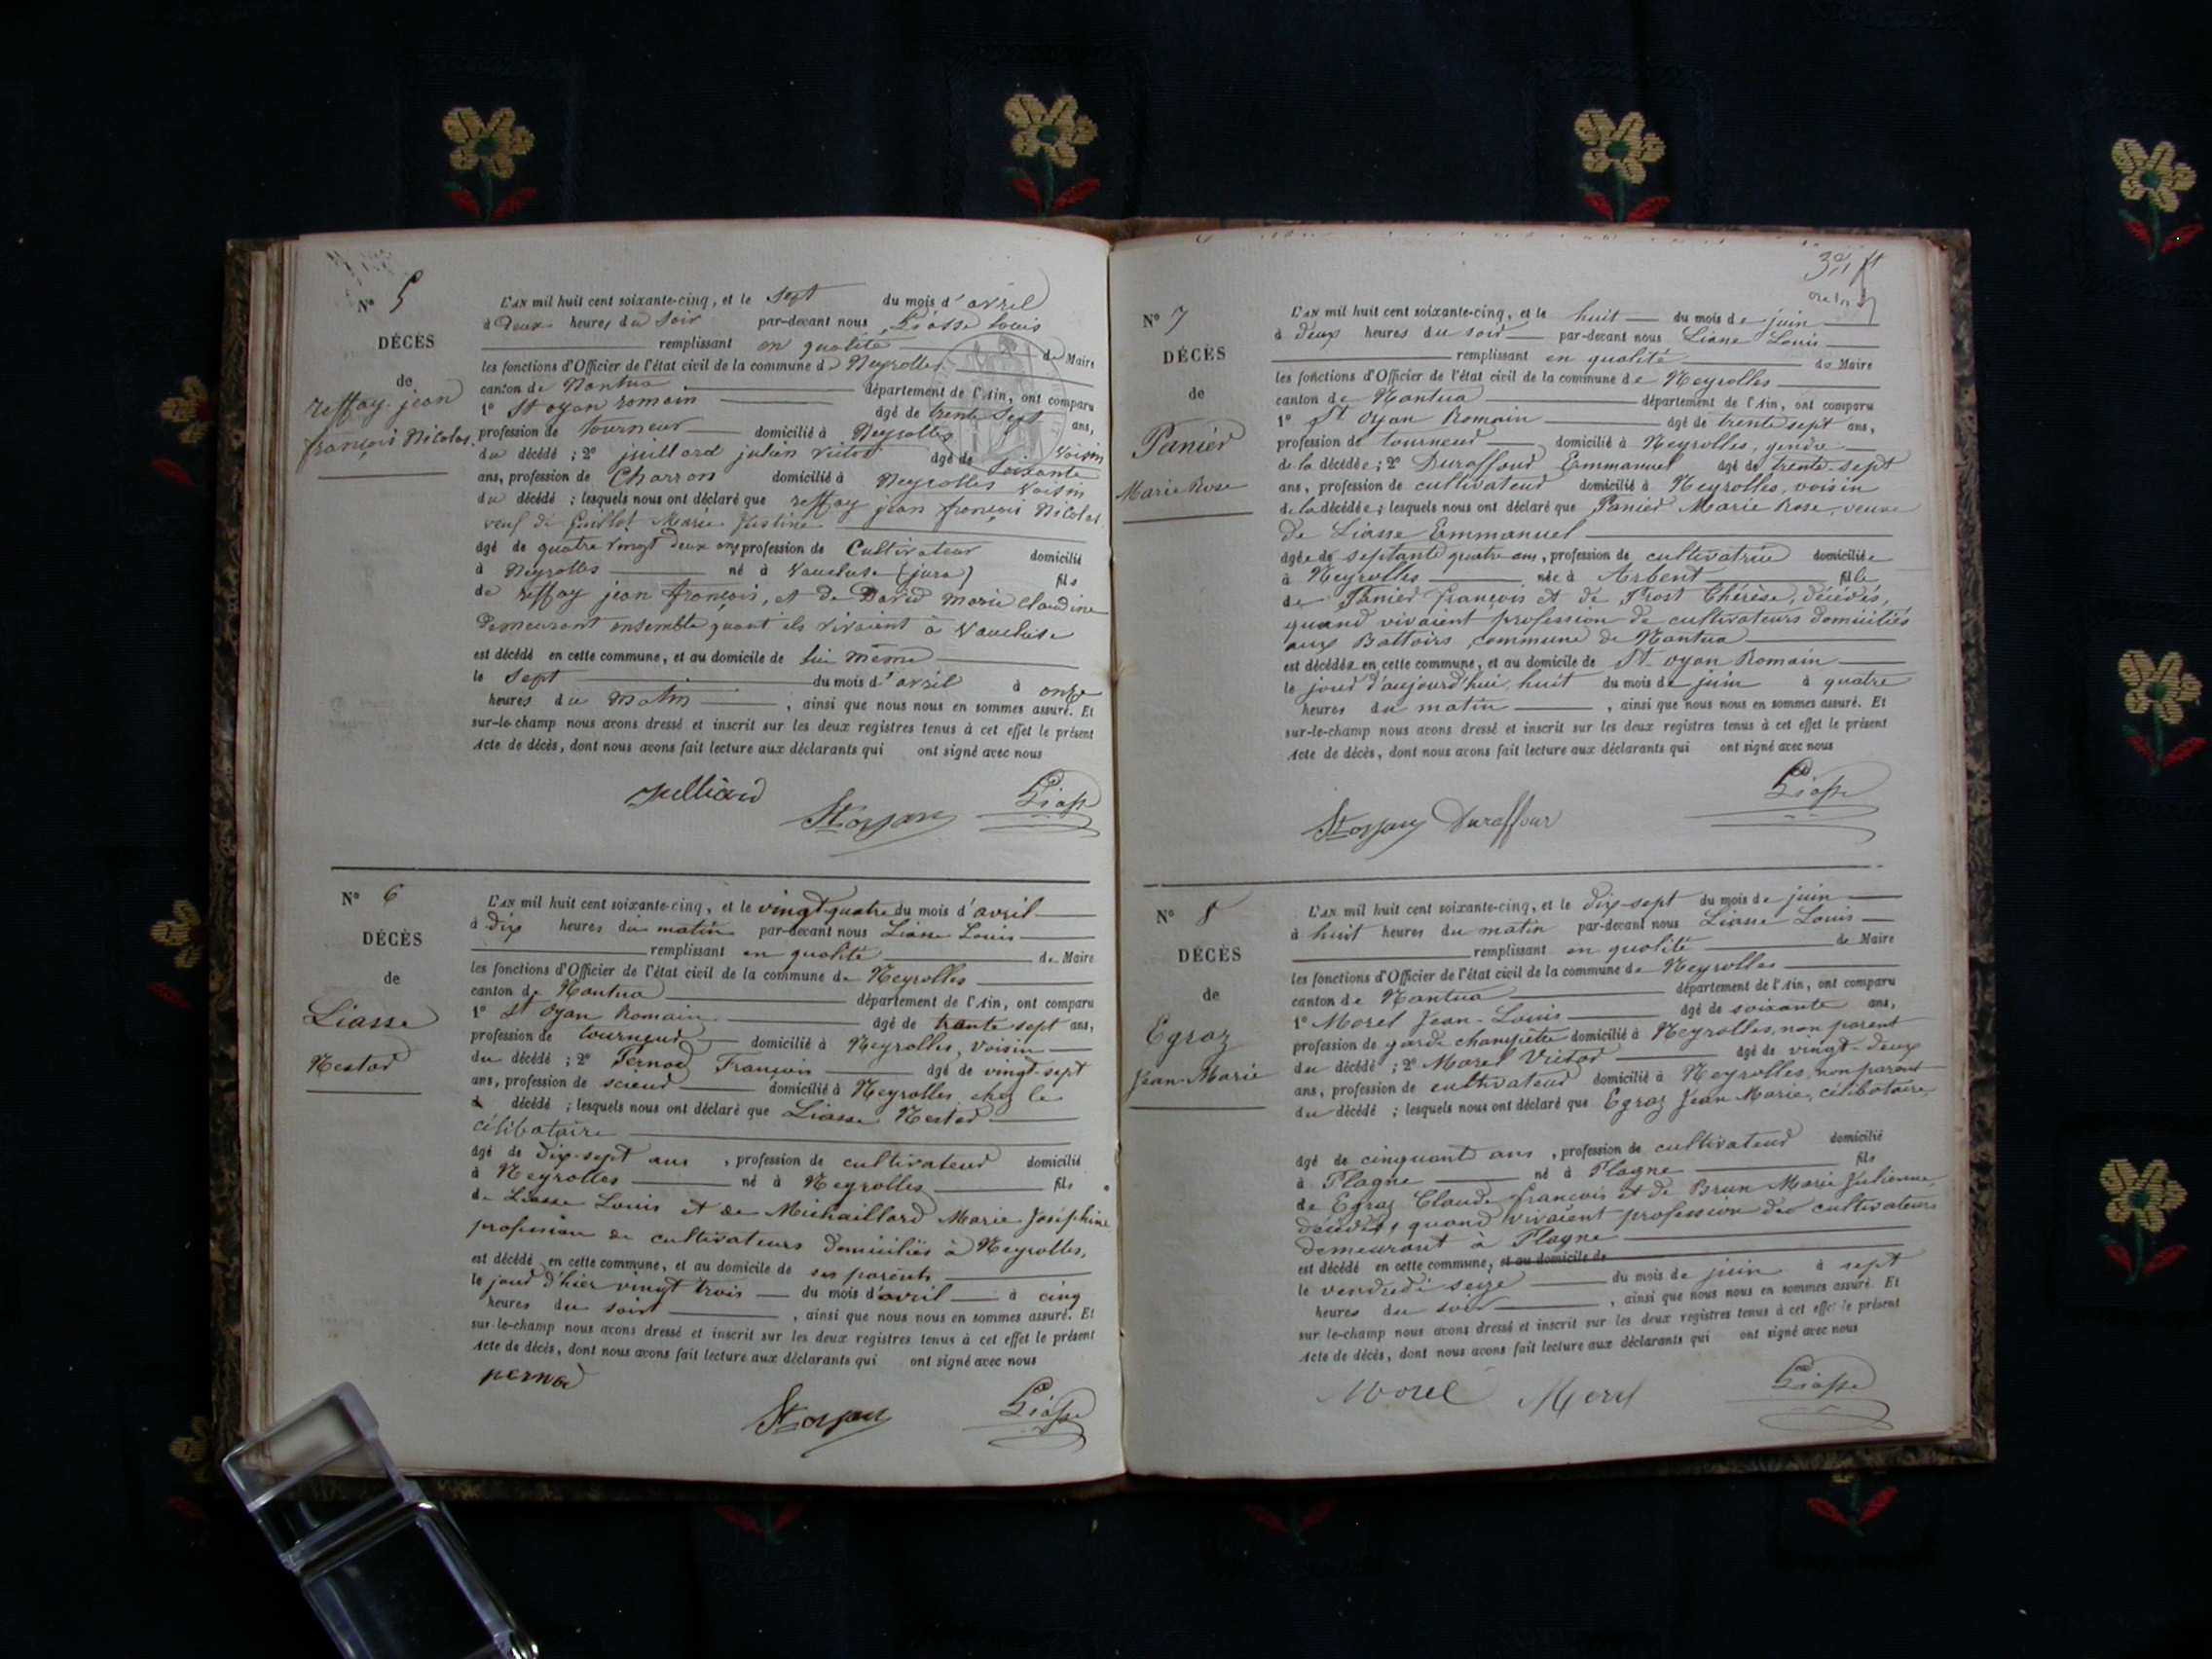 N° 5
DÉCÈS
de
reffay jean
françois Nicolas.
L'AN mil huit cent soixante-cinq, et le sept du mois d'avril
à deux heures du soir par-devant nous Liasse Louis
remplissant en qualité de Maire
les fonctions d'Officier de l'état civil de la commune de Neyrolles
canton de Nantua département de l'Ain, ont comparu
1° St oyan romain âgé de trente sept ans,
profession de tourneur domicilié à Neyrolles voisin
du décédé ; 2° juillard julien victor âgé de soixante
ans, profession de Charron domicilié à Neyrolles voisin
du décédé ; lesquels nous ont déclaré que reffay jean françois Nicolas
veuf de Guillot Marie Justine
âgé de quatre vingt deux ans profession de Cultivateur domicilié
à Neyrolles né à Vaucluse (jura) fils
de reffay jean françois, et de David marie Claudine
Demeurant ensemble quant ils vivaient à Vaucluse
est décédé en cette commune, et au domicile de lui même
le sept du mois d'avril à onze
heures du matin , ainsi que nous nous en sommes assuré. Et
sur-le-champ nous avons dressé et inscrit sur les deux registres tenus à cet effet le présent
Acte de décès, dont nous avons fait lecture aux déclarants qui ont signé avec nous
Julliard St oyan Liasse
N° 6
DÉCÈS
de
Liasse
Nestor
L'AN mil huit cent soixante-cinq, et le vingt-quatre du mois d'avril
à dix heures du matin par-devant nous Liasse Louis
remplissant en qualité de Maire
les fonctions d'Officier de l'état civil de la commune de Neyrolles
canton de Nantua département de l'Ain, ont comparu
1° St Oyan Romain âgé de trente sept ans,
profession de tourneur domicilié à Neyrolles, voisin
du décédé ; 2° Pernod François âgé de vingt-sept
ans, profession de scieur domicilié à Neyrolles chez le
décédé ; lesquels nous ont déclaré que Liasse Nestor
célibataire
âgé de dix-sept ans , profession de cultivateur domicilié
à Neyrolles né à Neyrolles fils
de Liasse Louis et de Michaillard Marie Joséphine
profession de cultivateurs domiciliés à Neyrolles,
est décédé en cette commune, et au domicile de ses parents
le jour d'hier vingt trois du mois d'avril à cinq
heures du soir , ainsi que nous nous en sommes assuré. Et
sur-le-champ nous avons dressé et inscrit sur les deux registres tenus à cet effet le présent
Acte de décès, dont nous avons fait lecture aux déclarants qui ont signé avec nous
pernod
St oyan Liasse
N° 7
DÉCÈS
de
Panier
Marie Rose
L'AN mil huit cent soixante-cinq, et le huit du mois de juin
à deux heures du soir par-devant nous Liasse Louis
remplissant en qualité de Maire
les fonctions d'Officier de l'état civil de la commune de Neyrolles
canton de Nantua département de l'Ain, ont comparu
1° St Oyan Romain âgé de trente sept ans,
profession de tourneur domicilié à Neyrolles, gendre
de la décédée ; 2° Duraffour Emmanuel âgé de trente-sept
ans, profession de cultivateur domicilié à Neyrolles, voisin
de la décédée ; lesquels nous ont déclaré que Panier Marie Rose, veuve
de Liasse Emmanuel
âgée de septante quatre ans, profession de cultivatrice domiciliée
à Neyrolles née à Arbent fille
de Panier françois et de Prost Thérèse, décédés,
quand vivaient profession de cultivateurs domiciliés
aux Battoirs commune de Nantua
est décédée en cette commune, et au domicile de St oyan Romain
le jour d'aujourd'hui huit du mois de juin à quatre
heures du matin , ainsi que nous nous en sommes assuré. Et
sur-le-champ nous avons dressé et inscrit sur les deux registres tenus à cet effet le présent
Acte de décès, dont nous avons fait lecture aux déclarants qui ont signé avec nous
St oyan Duraffour Liasse
N° 8
DÉCÈS
de
Egraz
Jean-Marie
L'AN mil huit cent soixante-cinq, et le dix-sept du mois de juin
à huit heures du matin par-devant nous Liasse Louis
remplissant en qualité de Maire
les fonctions d'Officier de l'état civil de la commune de Neyrolles
canton de Nantua département de l'Ain, ont comparu
1° Morel Jean-Louis âgé de soixante ans,
profession de garde champêtre domicilié à Neyrolles, non parent
du décédé ; 2° Morel Victor âgé de vingt-deux
ans, profession de cultivateur domicilié à Neyrolles, non parent
du décédé ; lesquels nous ont déclaré que Egraz Jean Marie, célibataire,
âgé de cinquant ans , profession de cultivateur domicilié
à Plagne né à Plagne fils
de Egraz Claude françois et de Brun Marie Julienne,
décédés, quand vivaient profession de cultivateurs
demeurant à Plagne
est décédé en cette commune, et au domicile de
le vendredi seize du mois de juin à sept
heures du soir , ainsi que nous nous en sommes assuré. Et
sur-le-champ nous avons dressé et inscrit sur les deux registres tenus à cet effet le présent
Acte de décès, dont nous avons fait lecture aux déclarants qui ont signé avec nous
Morel Morel Liasse